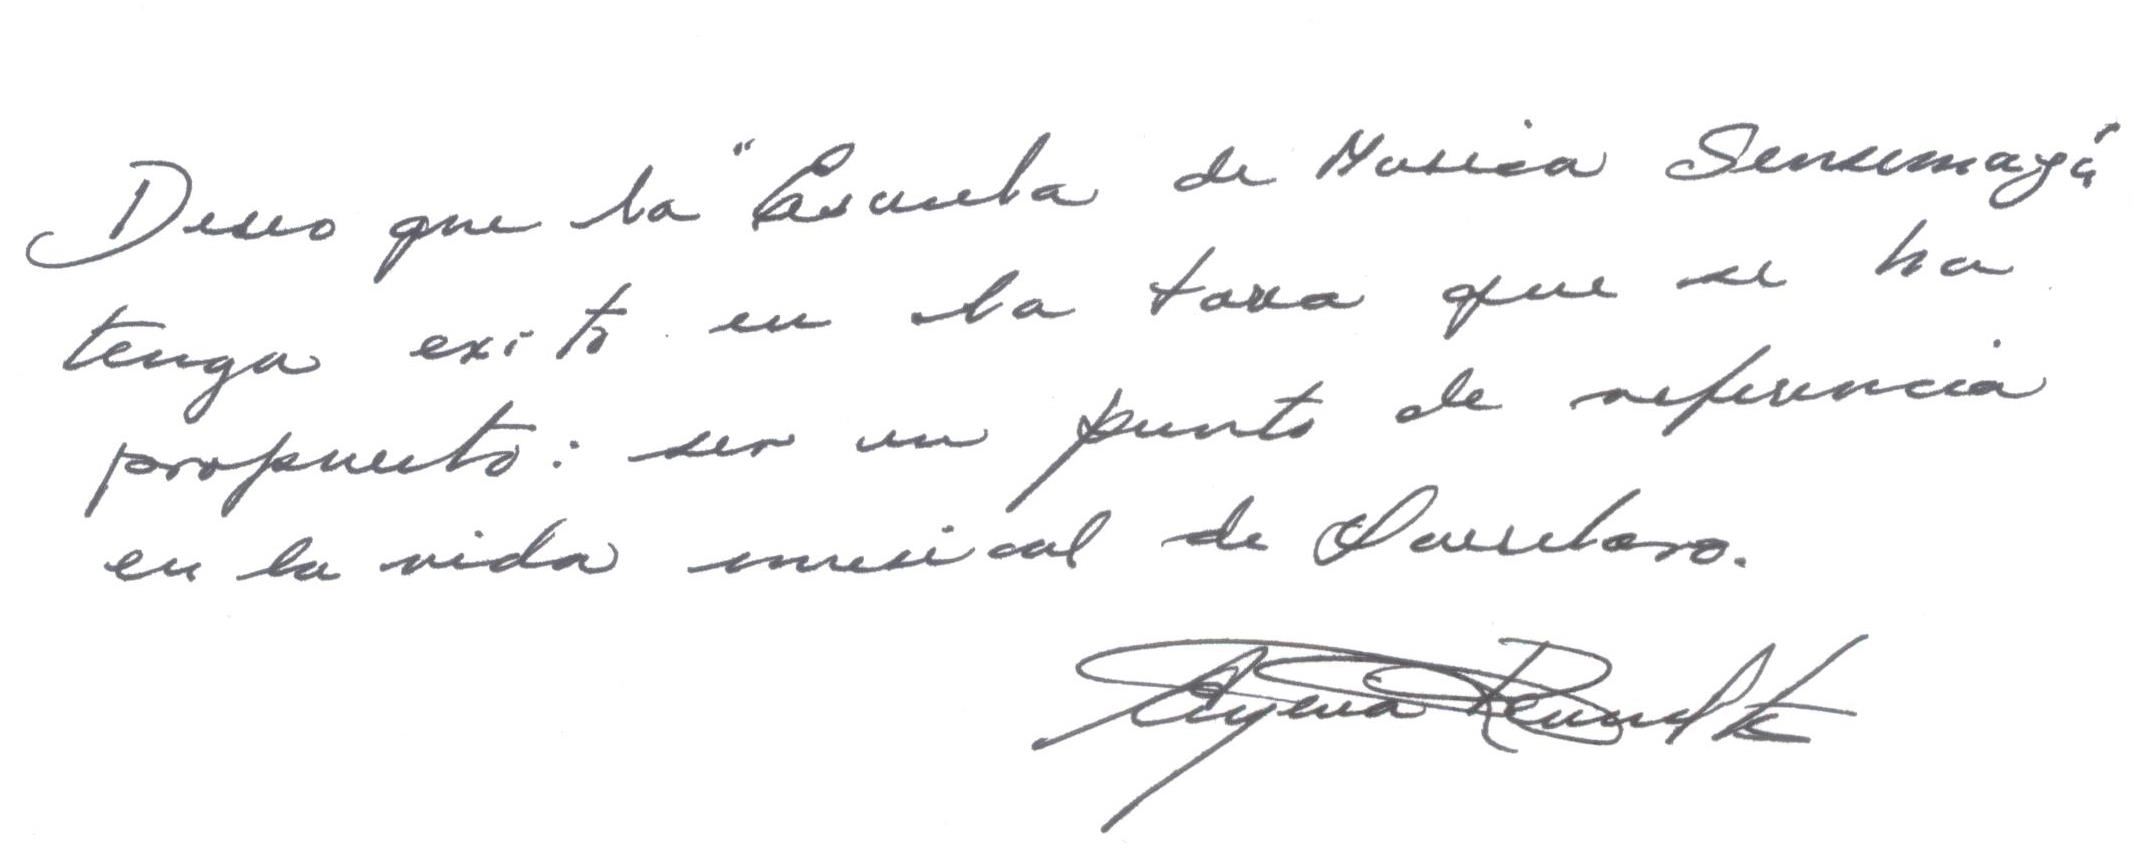 Deseo que la "Escuela de Musica Sensemayá"
tenga exito en la tarea que se ha
propuesto: ser un punto de referencia
en la vida musical de Queretaro.
Eugenia Revueltas